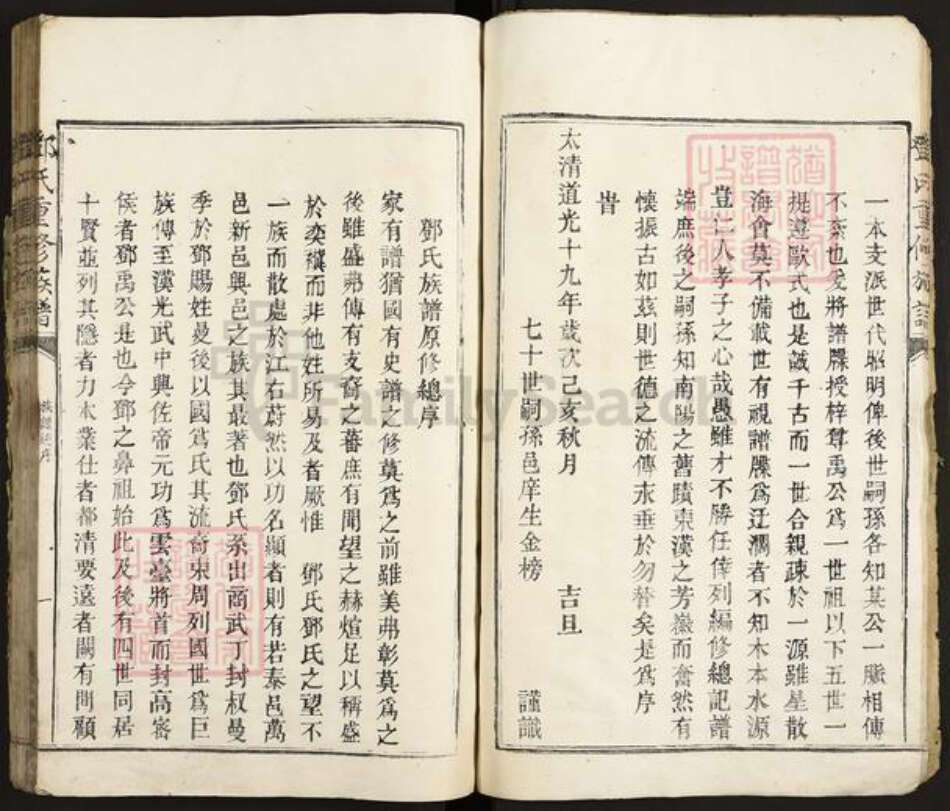 一本支派世代昭明俾後世嗣孫各知某公一脈相傳
不紊也爰將譜牒授梓尊禹公爲一世祖以下五世一
提遵歐式也是誠千古而一世合親疎於一源雖星散
海會莫不備載世有視譜牒爲迂濶者不知木本水源
豈仁人孝子之心哉愚雖才不勝任倖列編修總記譜
端庶後之嗣孫知南陽之舊蹟東漢之芳徽而奮然有
懷振古如玆則世德之流傳永垂於勿替矣是爲序
旹
太清道光十九年歲次己亥秋月 吉旦
七十世嗣孫邑庠生金榜 謹識
鄧氏族譜原修總序
家有譜猶國有史譜之修莫爲之前雖美弗彰莫爲之
後雖盛弗傳有支裔之蕃庶有聞望之赫煊足以稱盛
於奕禩而非他姓所易及者厥惟 鄧氏鄧氏之望不
一族而散處於江右蔚然以功名顯者則有若泰邑萬
邑新邑興邑之族其最著也鄧氏系出商武丁封叔曼
季於鄧賜姓曼後以國爲氏其流裔東周列國世爲巨
族傳至漢光武中興佐帝元功爲雲臺將首而封高密
侯者鄧禹公是也今鄧之鼻祖始此及後有四世同居
十賢並列其隱者力本業仕者都清要遠者關有間顧
鄧氏重修族譜
族譜總序
一
鄧氏重修族譜
FamilySearch